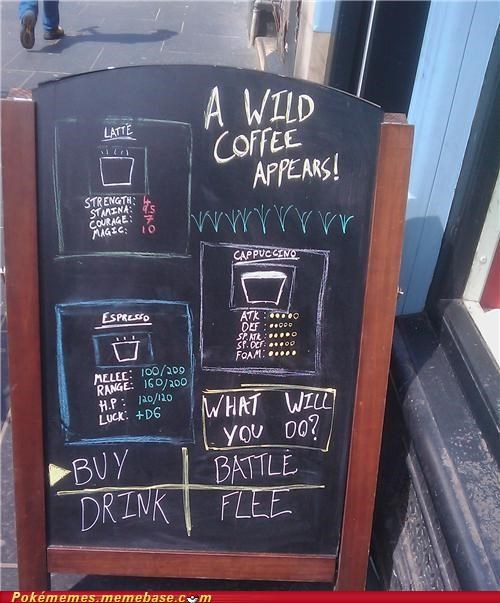 A WILD
COFFEE
APPEARS!
LATTÉ
STRENGTH: 4
STAMINA: 9.5
COURAGE: 7
MAGIC: 10
CAPPUCCINO
ATK:
DEF:
SP.ATK:
SP.DEF:
FOAM:
ESPRESSO
MELEE: 100/200
RANGE: 160/200
H.P: 120/120
LUCK: +D6
WHAT WILL
YOU DO?
BUY BATTLE
DRINK FLEE
Pokémemes.memebase.com